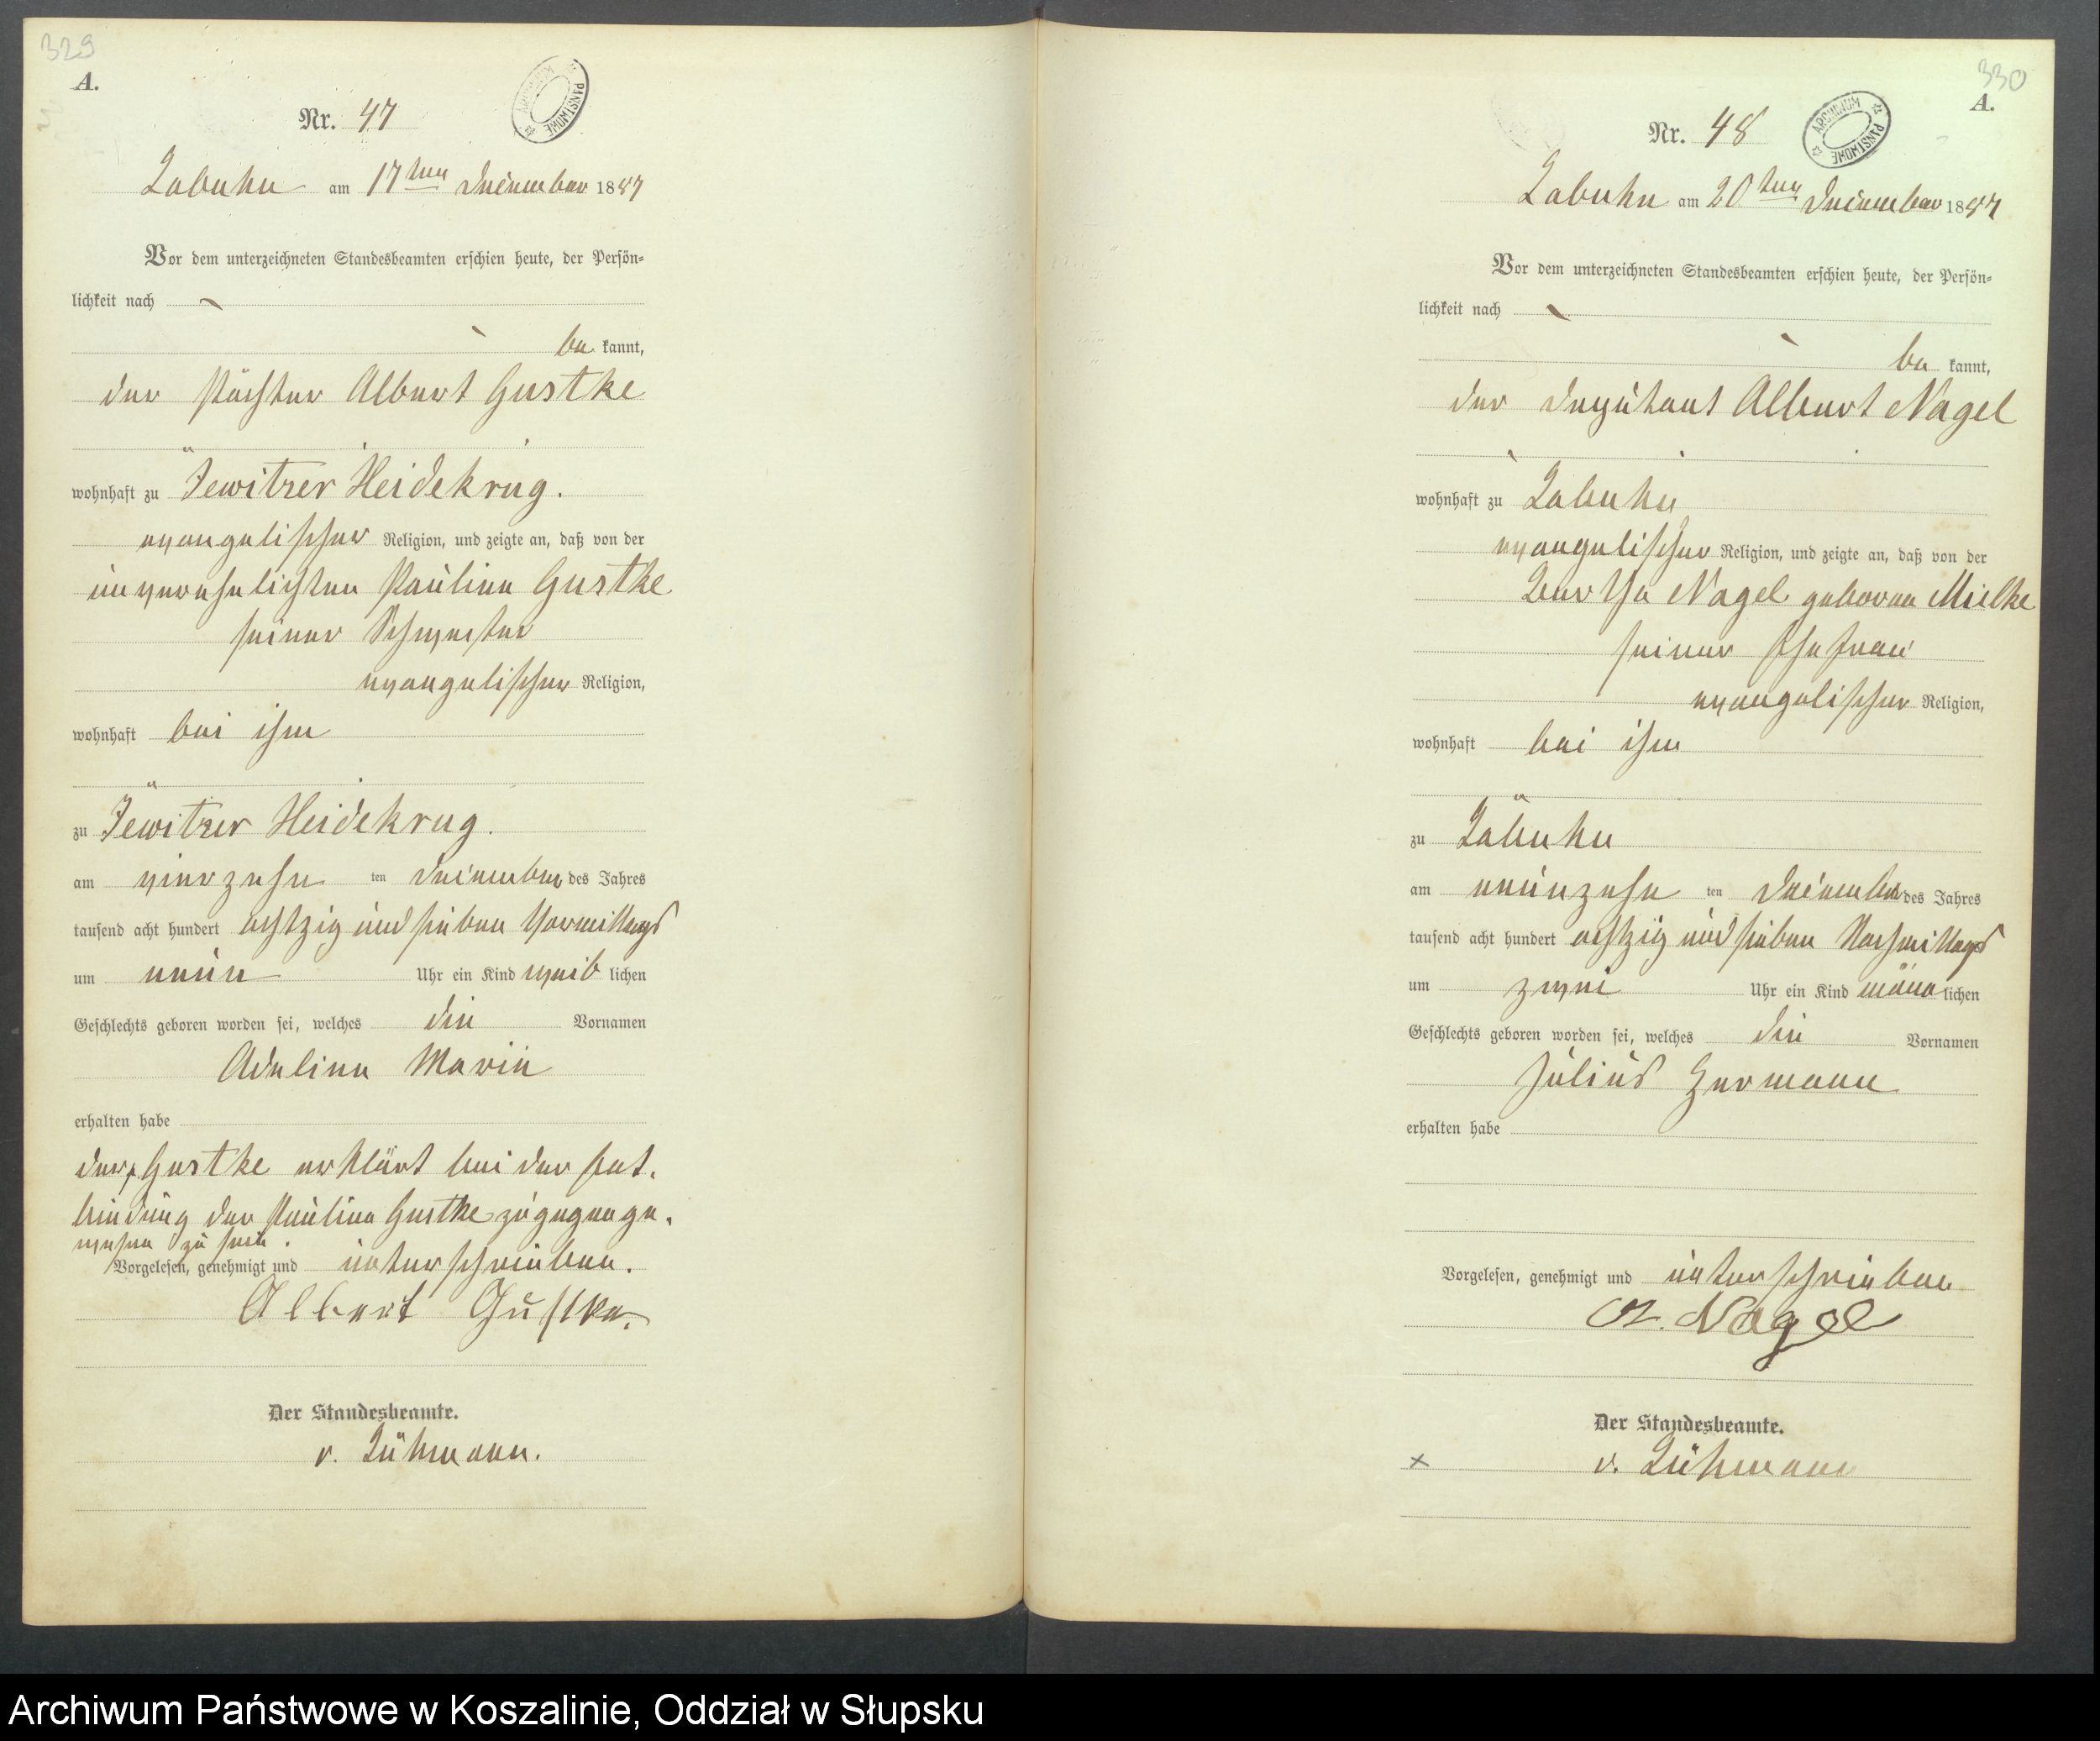 329
A.
Nr. 47
ARCHIWUM PAŃSTWOWE
Labuhn am 17ten Dezember 1887
Vor dem unterzeichneten Standesbeamten erschien heute, der Persön-
lichkeit nach
be kannt,
der Pächter Albert Gustke
wohnhaft zu Jewitzer Heidekrug.
evangelischer Religion, und zeigte an, daß von der
unverehelichten Pauline Gustke
seiner Schwester
evangelischer Religion,
wohnhaft bei ihm
zu Jewitzer Heidekrug.
am vierzehn ten Dezember des Jahres
tausend acht hundert achtzig und sieben Vormittags
um neun Uhr ein Kind weib lichen
Geschlechts geboren worden sei, welches die Vornamen
Adeline Marie
erhalten habe
der Gustke erklärt bei der Ent-
bindung der Pauline Gustke zugegen ge-
wesen zu sein.
Vorgelesen, genehmigt und unterschrieben.
Albert Gustke.
Der Standesbeamte.
v. Lühmann.
330
A.
Nr. 48
ARCHIWUM PAŃSTWOWE
Labuhn am 20ten Dezember 1887
Vor dem unterzeichneten Standesbeamten erschien heute, der Persön-
lichkeit nach
be kannt,
der Deputant Albert Nagel
wohnhaft zu Labuhn
evangelischer Religion, und zeigte an, daß von der
Bertha Nagel geboren Mielke
seiner Ehefrau
evangelischer Religion,
wohnhaft bei ihm
zu Labuhn
am neunzehn ten Dezember des Jahres
tausend acht hundert achtzig und sieben Nachmittags
um zwei Uhr ein Kind männ lichen
Geschlechts geboren worden sei, welches die Vornamen
Julius Hermann
erhalten habe
Vorgelesen, genehmigt und unterschrieben
A. Nagel
Der Standesbeamte.
x v. Lühmann
Archiwum Państwowe w Koszalinie, Oddział w Słupsku